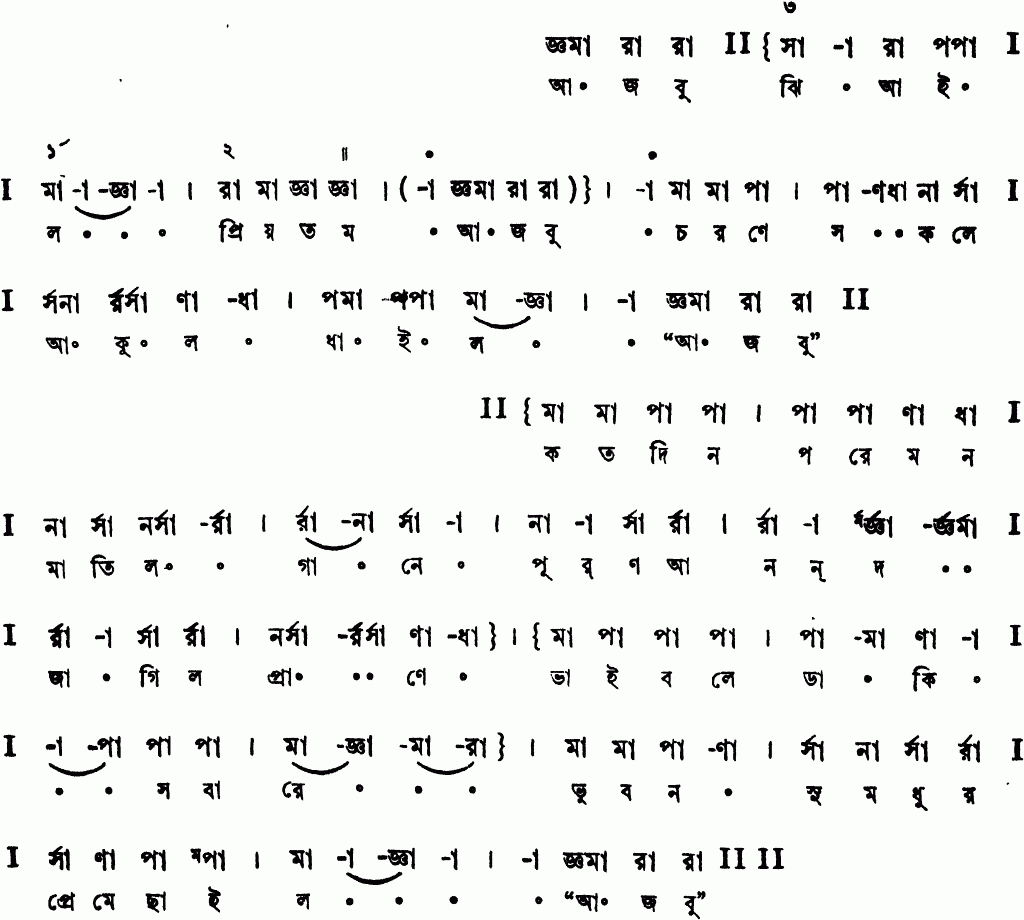 ৩
জ্ঞমা রা রা II { সা -া রা পপা I
আ॰ জ বু ঝি ॰ আ ই॰
১´ ২ ॥ • •
I মা -া -জ্ঞা -া । রা মা জ্ঞা জ্ঞা । ( -া জ্ঞমা রা রা ) } । -া মা মা পা । পা -ণধা না র্সা I
ল ॰ ॰ ॰ প্রি য় ত ম ॰ আ॰ জ বু ॰ চ র ণে স ॰॰ ক লে
I র্সনা র্রর্সা ণা -ধা । পমা -পপা মা -জ্ঞা । -া জ্ঞমা রা রা II
আ॰ কু॰ ল ॰ ধা॰ ই॰ ল ॰ ॰ “আ॰ জ বু”
II { মা মা পা পা । পা পা ণা ধা I
ক ত দি ন প রে ম ন
I না র্সা নর্সা -র্রা । র্রা -না র্সা -া । না -া র্সা র্রা । র্রা -া র্মর্জ্ঞা -র্জ্ঞর্মা I
মা তি ল॰ ॰ গা ॰ নে ॰ পূ র্ ণ আ ন ন্ দ ॰॰
I র্রা -া র্সা র্রা । নর্সা -র্রর্সা ণা -ধা } । { মা পা পা পা । পা -মা ণা -া I
জা ॰ গি ল প্রা॰ ॰॰ ণে ॰ ভা ই ব লে ডা ॰ কি ॰
I -া -পা পা পা । মা -জ্ঞা -মা -রা } । মা মা পা -ণা । র্সা না র্সা র্রা I
॰ ॰ স বা রে ॰ ॰ ॰ ভু ব ন ॰ সু ম ধু র
I র্সা ণা পা মপা । মা -া -জ্ঞা -া । -া জ্ঞমা রা রা II II
প্রে মে ছা ই ল ॰ ॰ ॰ ॰ “আ॰ জ বু”